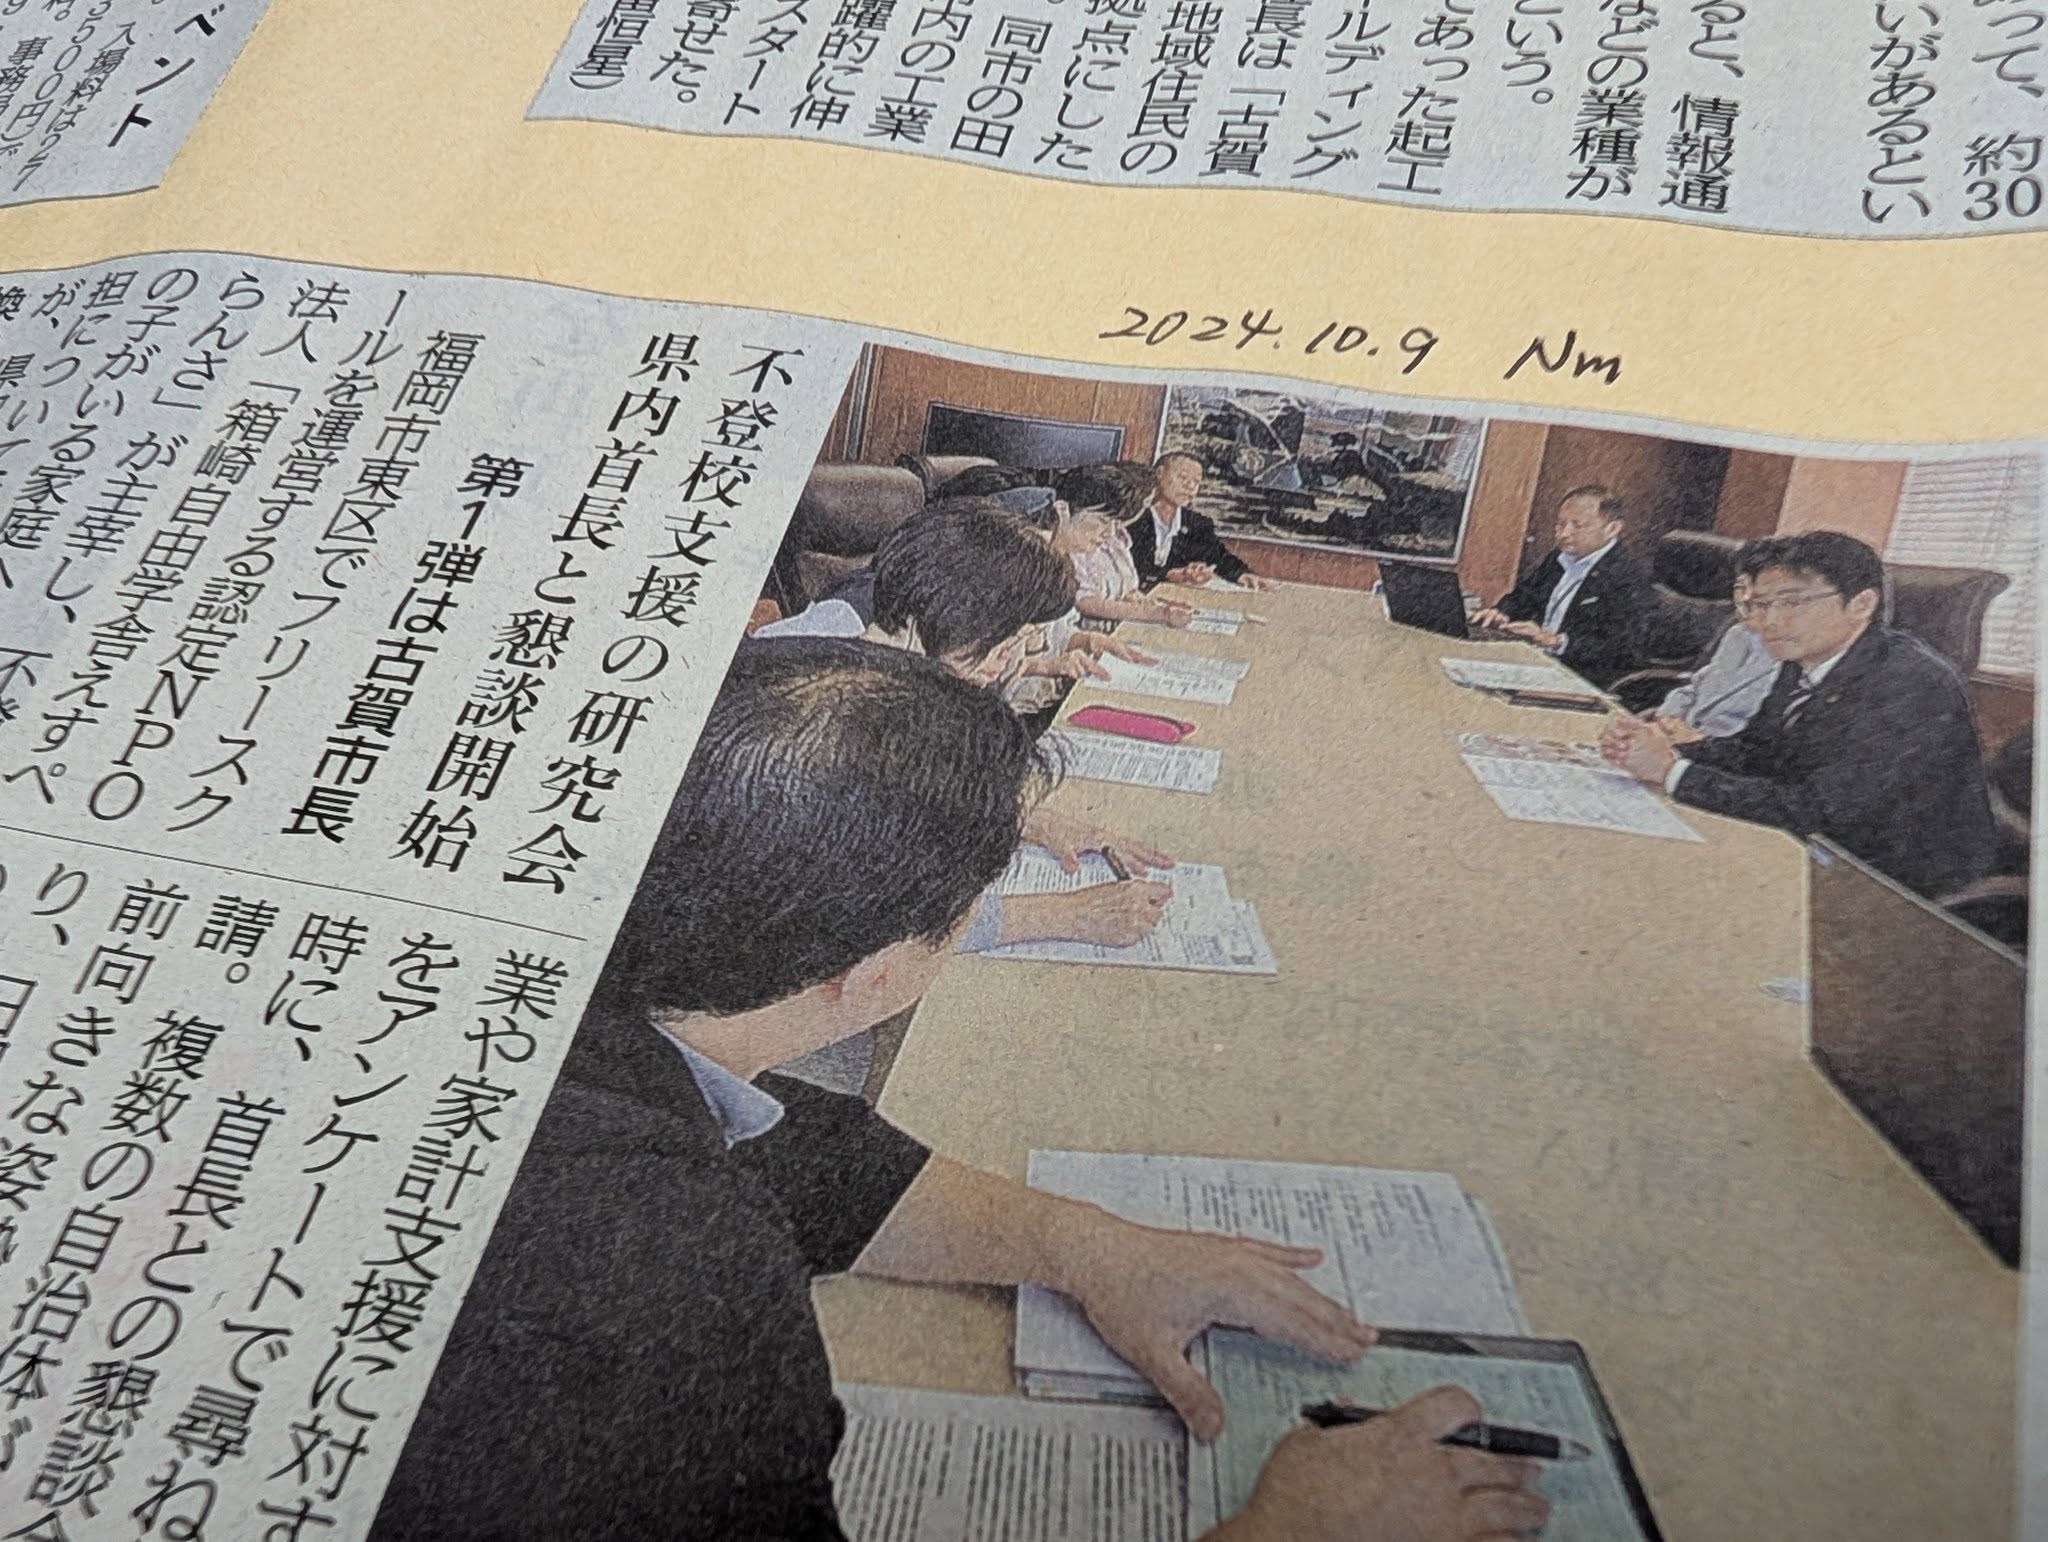 って、約30
いがあるとい
ると、情報通
などの業種が
という。
であった起工
ールディング
長は「古賀
地域住民の
拠点にした
。同市の田
市内の工業
躍的に伸
スタート
寄せた。
恒星）
ベント
入場料は27
3500円
事務局
2024.10.9 Nm
不登校支援の研究会
県内首長と懇談開始
第1弾は古賀市長
福岡市東区でフリースク
ールを運営する認定NPO
法人「箱崎自由学舎えすぺ
らんさ」が主宰し、不
の子がいる家庭へ
担について
が、県
換
業や家計支援に対す
をアンケートで尋ね
時に、首長との懇談
請。複数の自治体が
前向きな姿
り、